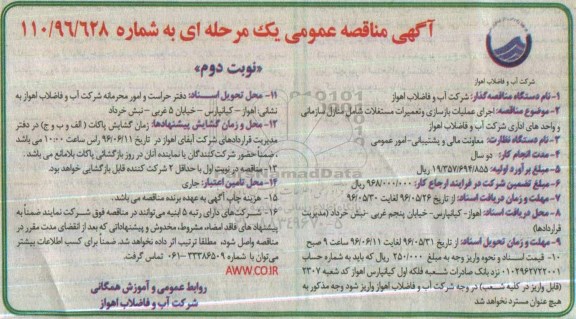 آگهی مناقصه عمومی یک مرحله ای به شماره ۱۱۰/۹۶/۶۲۸
«نوبت دوم»
شرکت آب و فاضلاب اهواز
۱- نام دستگاه مناقصه‌گذار: شرکت آب و فاضلاب اهواز
۲- موضوع مناقصه: اجرای عملیات بازسازی و تعمیرات مستغلات شامل منازل سازمانی
و واحد های اداری شرکت آب و فاضلاب اهواز
۳- نام دستگاه نظارت: معاونت مالی و پشتیبانی- امور عمومی
۴- مدت انجام کار: دو سال
۵- مبلغ برآورد اولیه: ۱۹/۳۵۷/۶۹۴/۸۵۵ ریال
۶- مبلغ تضمین شرکت در فرایند ارجاع کار: ۹۶۸/۰۰۰/۰۰۰ ریال
۷- مهلت و زمان دریافت اسناد: از تاریخ ۹۶/۰۵/۲۶ لغایت ۹۶/۰۵/۳۰
۸- محل دریافت اسناد: اهواز- کیانپارس- خیابان پنجم غربی- نبش خرداد (مدیریت
قراردادها)
۹- مهلت و زمان تحویل اسناد: از تاریخ ۹۶/۰۵/۳۱ لغایت ۹۶/۰۶/۱۱ ساعت ۹ صبح
۱۰- قیمت اسناد و نحوه واریز وجه به مبلغ ۲۵۰/۰۰۰ ریال که باید به شماره حساب
۰۱۰۲۹۶۲۷۲۲۰۰۱ نزد بانک صادرات شعبه فلکه اول کیانپارس اهواز کد شعبه ۲۳۰۷
(قابل واریز در کلیه شعب) در وجه شرکت آب و فاضلاب اهواز واریز شود وجه مذکور به
هیچ عنوان مسترد نخواهد شد
۱۱- محل تحویل اسناد: دفتر حراست و امور محرمانه شرکت آب و فاضلاب اهواز به
نشانی: اهواز - کیانپارس - خیابان ۵ غربی - نبش خرداد
۱۲- محل و زمان گشایش پیشنهادها: زمان گشایش پاکات (الف و ب و ج) در دفتر
مدیریت قراردادهای شرکت آبفای اهواز در تاریخ ۹۶/۰۶/۱۱ راس ساعت ۱۰:۰۰ می باشد
، ضمنا حضور شرکت‌کنندگان یا نماینده آنان در روز بازگشائی پاکات بلامانع می باشد.
۱۳- مناقصه در نوبت اول با حداقل ۲ شرکت کننده قابل بازگشایی خواهد بود.
۱۴- محل تامین اعتبار: جاری
۱۵- هزینه چاپ آگهی به عهده برنده مناقصه می باشد.
۱۶- شرکت‌های دارای رتبه ۵ ابنیه می‌توانند در مناقصه فوق شرکت نمایند ضمناً به
پیشنهاد های فاقد امضاء، مشروط، مخدوش و پیشنهاداتی که بعد از انقضای مدت مقرر در
مناقصه واصل شود، مطلقا ترتیب اثر داده نخواهد شد. ضمناً برای کسب اطلاعات بیشتر
می‌توان با شماره ۳۳۳۸۶۵۰۹-۰۶۱ تماس گرفت.
AWW.CO.IR
روابط عمومی و آموزش همگانی
شرکت آب و فاضلاب اهواز